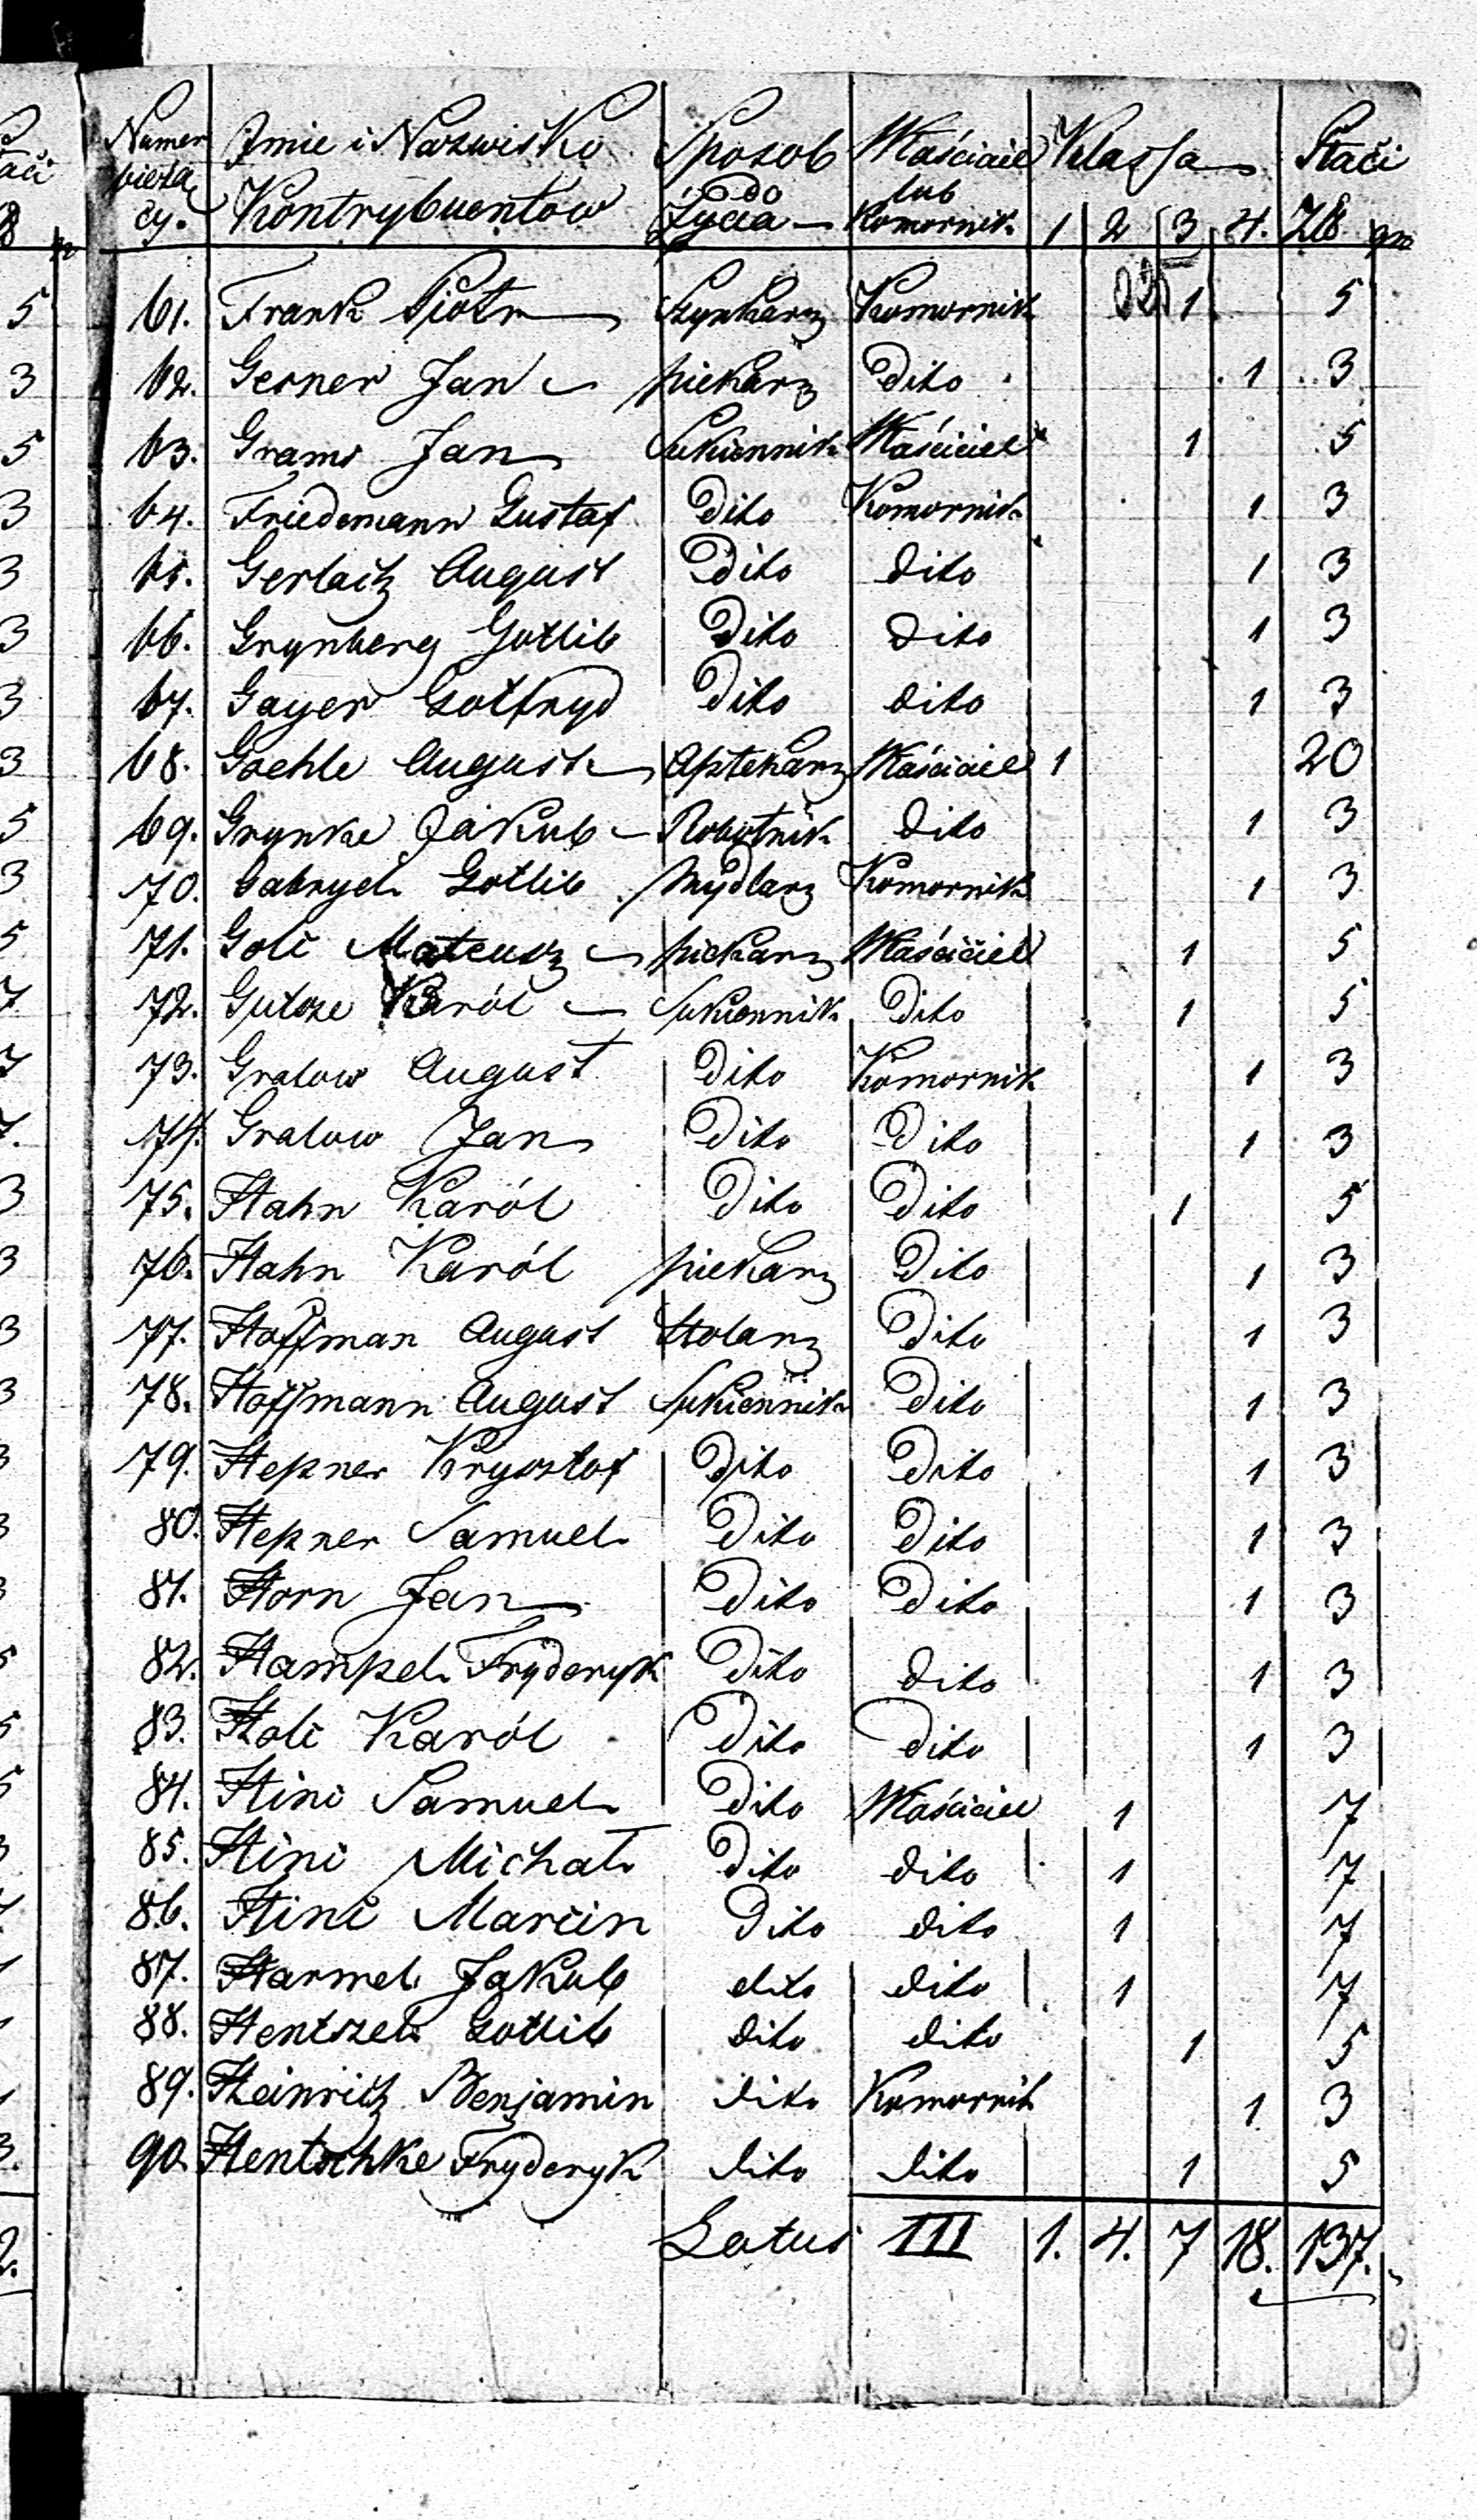 Numer Imie i Nazwisko Sposob Właściciel Klassa Płaći
bieżą do lub
cy. Kontrybuentow Życia Komornik 1 2 3 4. Zł gr
61. Frank Piotr Szynkarz Komornik 1 5
62. Gerner Jan piekarz Dito 1 3
63. Grams Jan Sukiennik Właściciel 1 5
64. Friedemann Gustaf Dito Komornik 1 3
65. Gerlach August Dito dito 1 3
66. Grynberg Gotlib Dito Dito 1 3
67. Gayer Gotfryd Dito dito 1 3
68. Goehle August Aptekarz Właściciel 1 20
69. Grynke Jakub Robotnik Dito 1 3
70. Gabryel Gotlib Mydlarz Komornik 1 3
71. Golc Mateusz piekarz Właściciel 1 5
72. Gutsze Karól Sukiennik Dito 1 5
73. Gralow August Dito Komornik 1 3
74. Gralow Jan Dito Dito 1 3
75. Hahn Karól Dito Dito 1 5
76. Hahn Karól piekarz Dito 1 3
77. Hoffman August Stolarz Dito 1 3
78. Hoffmann August Sukiennik Dito 1 3
79. Hepner Krysztof Dito Dito 1 3
80. Hepner Samuel Dito Dito 1 3
81. Horn Jan Dito Dito 1 3
82. Hampel Fryderyk Dito dito 1 3
83. Holc Karól Dito Dito 1 3
84. Hinc Samuel Dito Właściciel 1 7
85. Hinc Michał Dito dito 1 7
86. Hinc Marcin Dito dito 1 7
87. Harmel Jakub dito dito 1 7
88. Hentszel Gotlib dito dito 1 5
89. Heinrich Benjamin dito Komornik 1 3
90. Hentschke Fryderyk dito dito 1 5
Latus III 1. 4. 7 18. 137.